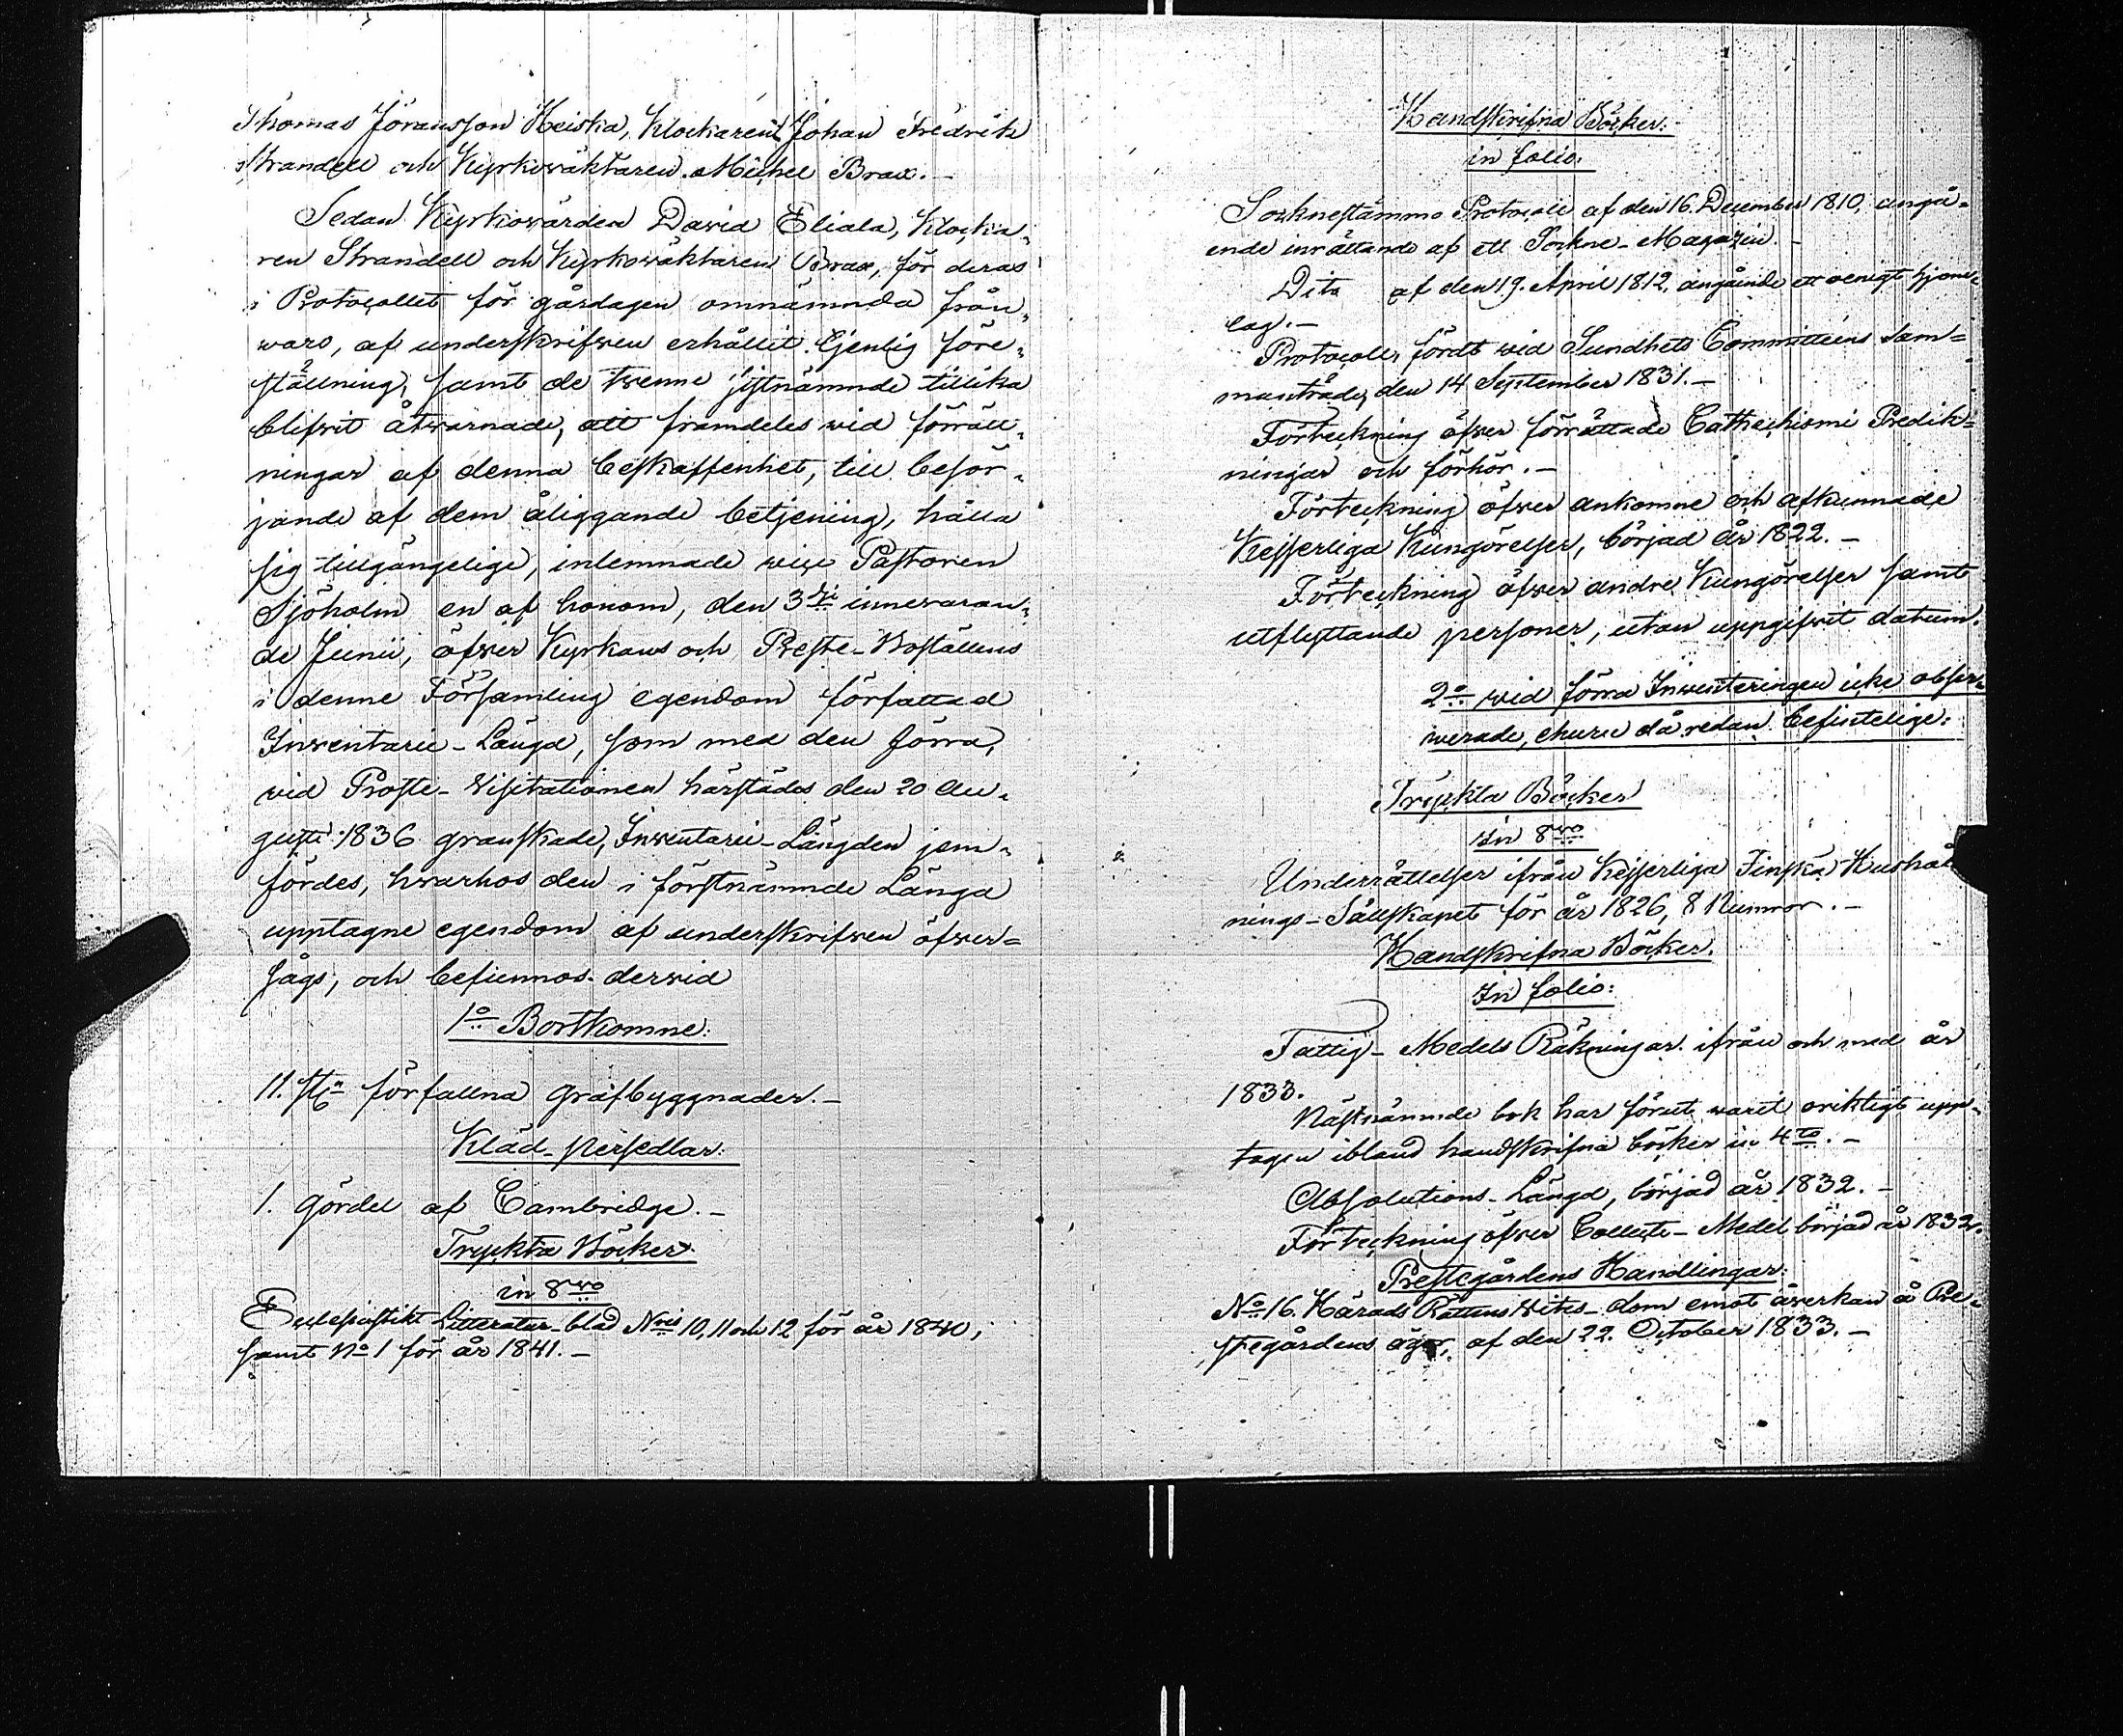 Thomas Jöransson Heiska, Klockaren Johan Fredrik
Strandell och Kyrkoväktaren Michel Brax.–
Sedan Kyrkovärden David Eliala, Klocka-
ren Strandell och Kyrkoväktaren Brax, för deras
i Protocollet för gårdagen omnämnda från-
varo, af underskrifven erhållit tjenlig före-
ställning, samt de tvenne sistnämnde tillika
blifvit åtvarnade, att framdeles vid förrätt-
ningar af denna beskaffenhet, till beför-
jande af dem åliggande betjening, hålla
sig tillgängelige, inlemnade vice Pastoren
Sjöholm en af honom, den 3die innevaran-
de Junii, öfver Kyrkans och Preste-Boställens
i denne Församling egendom författad
Inventarie-Längd, som med den förra,
vid Prosté-Visitationen härstädes den 20 Au-
gusti 1836 granskade, Inventarie-Längden jem-
fördes, hvarhos den i förstnämnde Längd
upptagne egendom af underskrifven öfver=
sågs, och befunnos dervid
1o Bortkomne:
11. st. förfallna grafbyggnader.–
Kläd-persedlar:
1. gördel af Cambridge.–
Tryckta Böcker
in 8vo
Ecclesiastikt Litteratur-blad Nris 10, 11 och 12 för år 1840,
samt No 1 för år 1841.–
Handskrifna Böcker:
in folio:
Sockenstämmo Protocoll af den 16. December 1810, angå-
ende inrättande af ett Sockne-Magazin.–
Dito af den 19. April 1812, angående ett venigt hjone-
lag.–
Protocoll, fördt vid Sundhets Committéens Sam=
manträde, den 14 September 1831.–
Förteckning öfver förrättade Cathechismi Predik=
ningar och förhör.–
Förteckning öfver ankomne och afkunnade
Kejserliga Kungörelser, börjad år 1822.–
Förteckning öfver andre Kungörelser samt
utflyttande personer, utan uppgifvit datum.
2o vid förra Inventeringen icke obser-
verade, ehuru då redan befintelige:
Tryckta Böcker
in 8vo
Underrättelser ifrån Kejserliga Finska Hushåll
nings-Sällskapet för år 1826, 8 Numror.–
Handskrifna Böcker.
In folio:
Fattig-Medels Räkningar ifrån och med år
1833.
Nästnämnde bok har förut varit oriktigt upp-
tagen ibland handskrifna böcker in 4to.–
Absolutions-Längd, börjad år 1832.–
Förteckning öfver Collecte-Medel börjad år 1832.
Prestegårdens Handlingar:
No 16. Härads Rättens Vites-dom emot åverkan å Pre-
stegårdens ägor, af den 22. October 1833.–